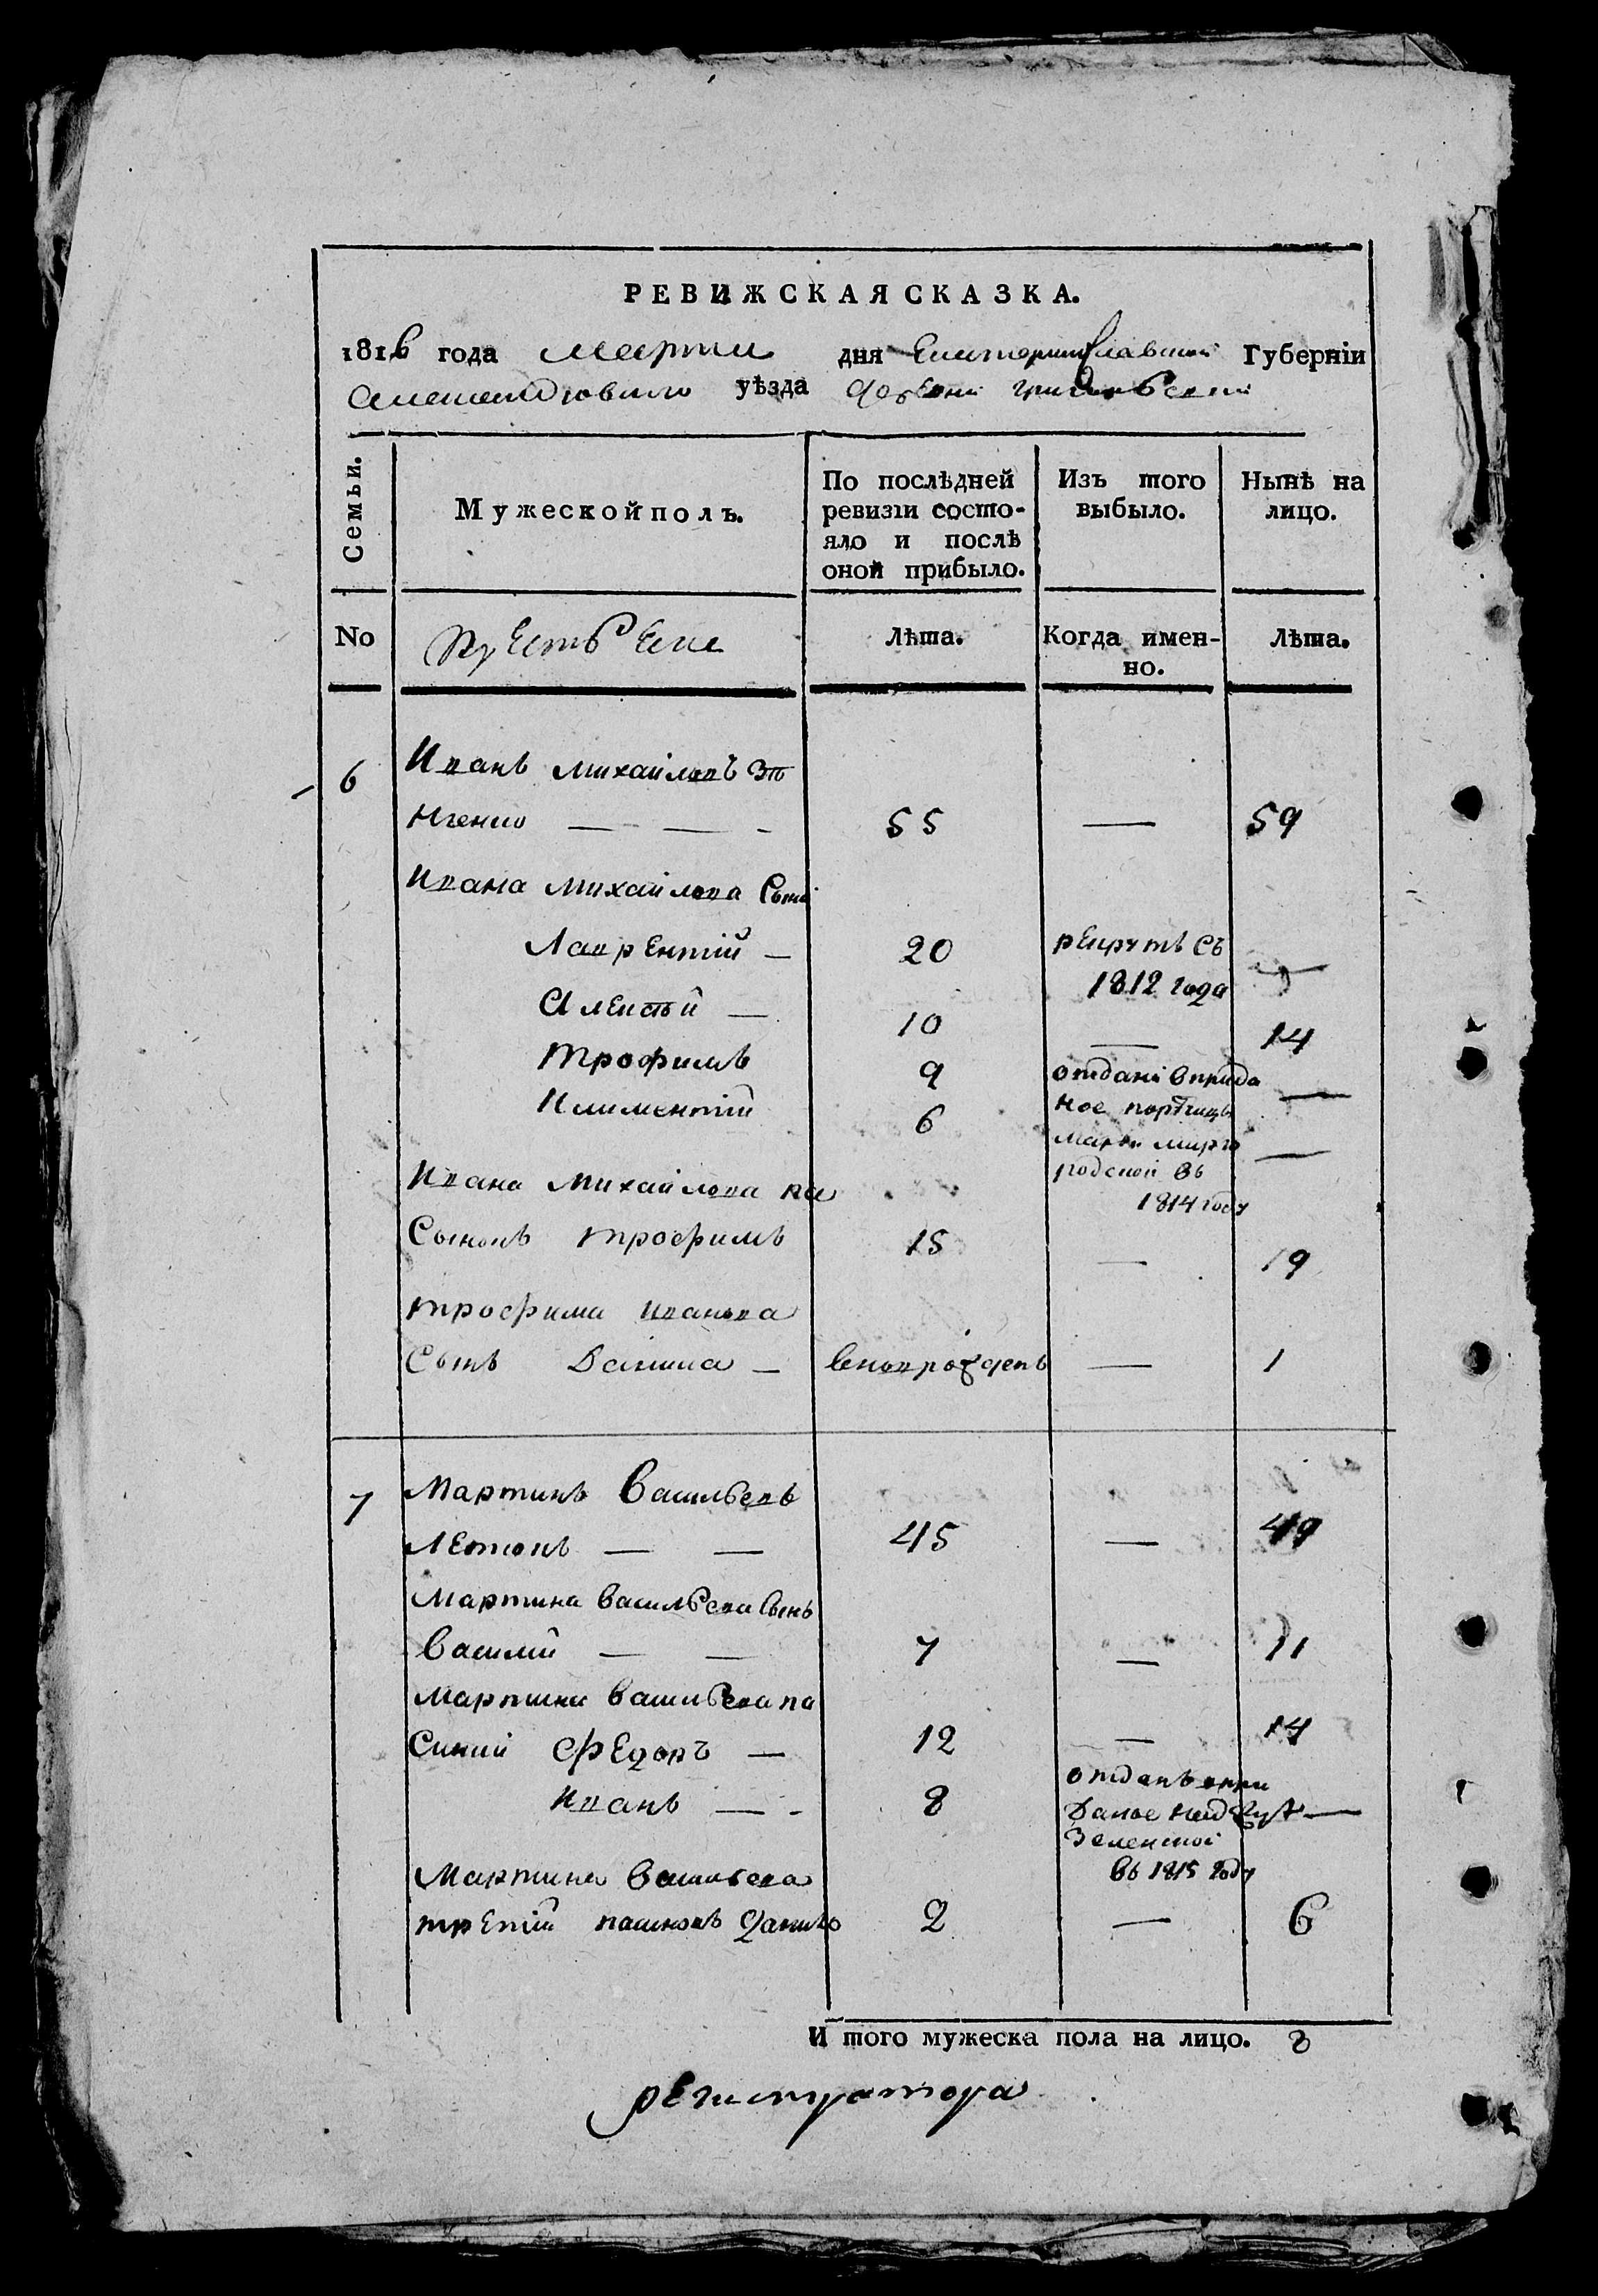 РЕВИЖСКАЯ СКАЗКА.
1816 года марта дня Екатеринославской Губерніи
Александровского уѣзда деревни
Семьи.
Мужеской полъ.
По послѣдней ревизіи состо-
яло и послѣ
оной прибыло.
Изъ того
выбыло.
Нынѣ на
лицо.
No
крестьяне
Лѣта.
Когда имен-
но.
Лѣта.
6
Иванъ Михайловъ
55 — 59
Ивана Михайлова Сыны
Лаврентій — 20 рекрутъ съ
1812 года —
Алексѣй — 10 — 14
Трофимъ 9 отдани в прида —
Климентій 6 ное порутчицы
родской въ —
1814 году
Ивана Михайлова па
Сынокъ Трофимъ 15 — 19
Трофима Иванова
Сынъ Данила — вновь рожденъ — 1
7
Мартинъ Васильевъ
45 — 49
Мартина Васильева Сынъ
Василий — — 7 — 11
Мартина Васильева па
Синки Федоръ — 12 — 14
Иванъ — - 8 отданъ в при
даное —
Зеленской
въ 1815 году
Мартина Васильева
третій пасинокъ Данило 2 — 6
И того мужеска пола на лицо. 8
регистратора